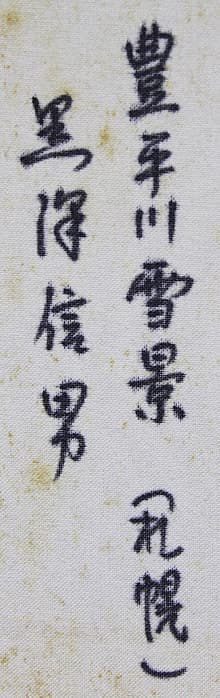 豊平川雪景（札幌）
黒澤信男